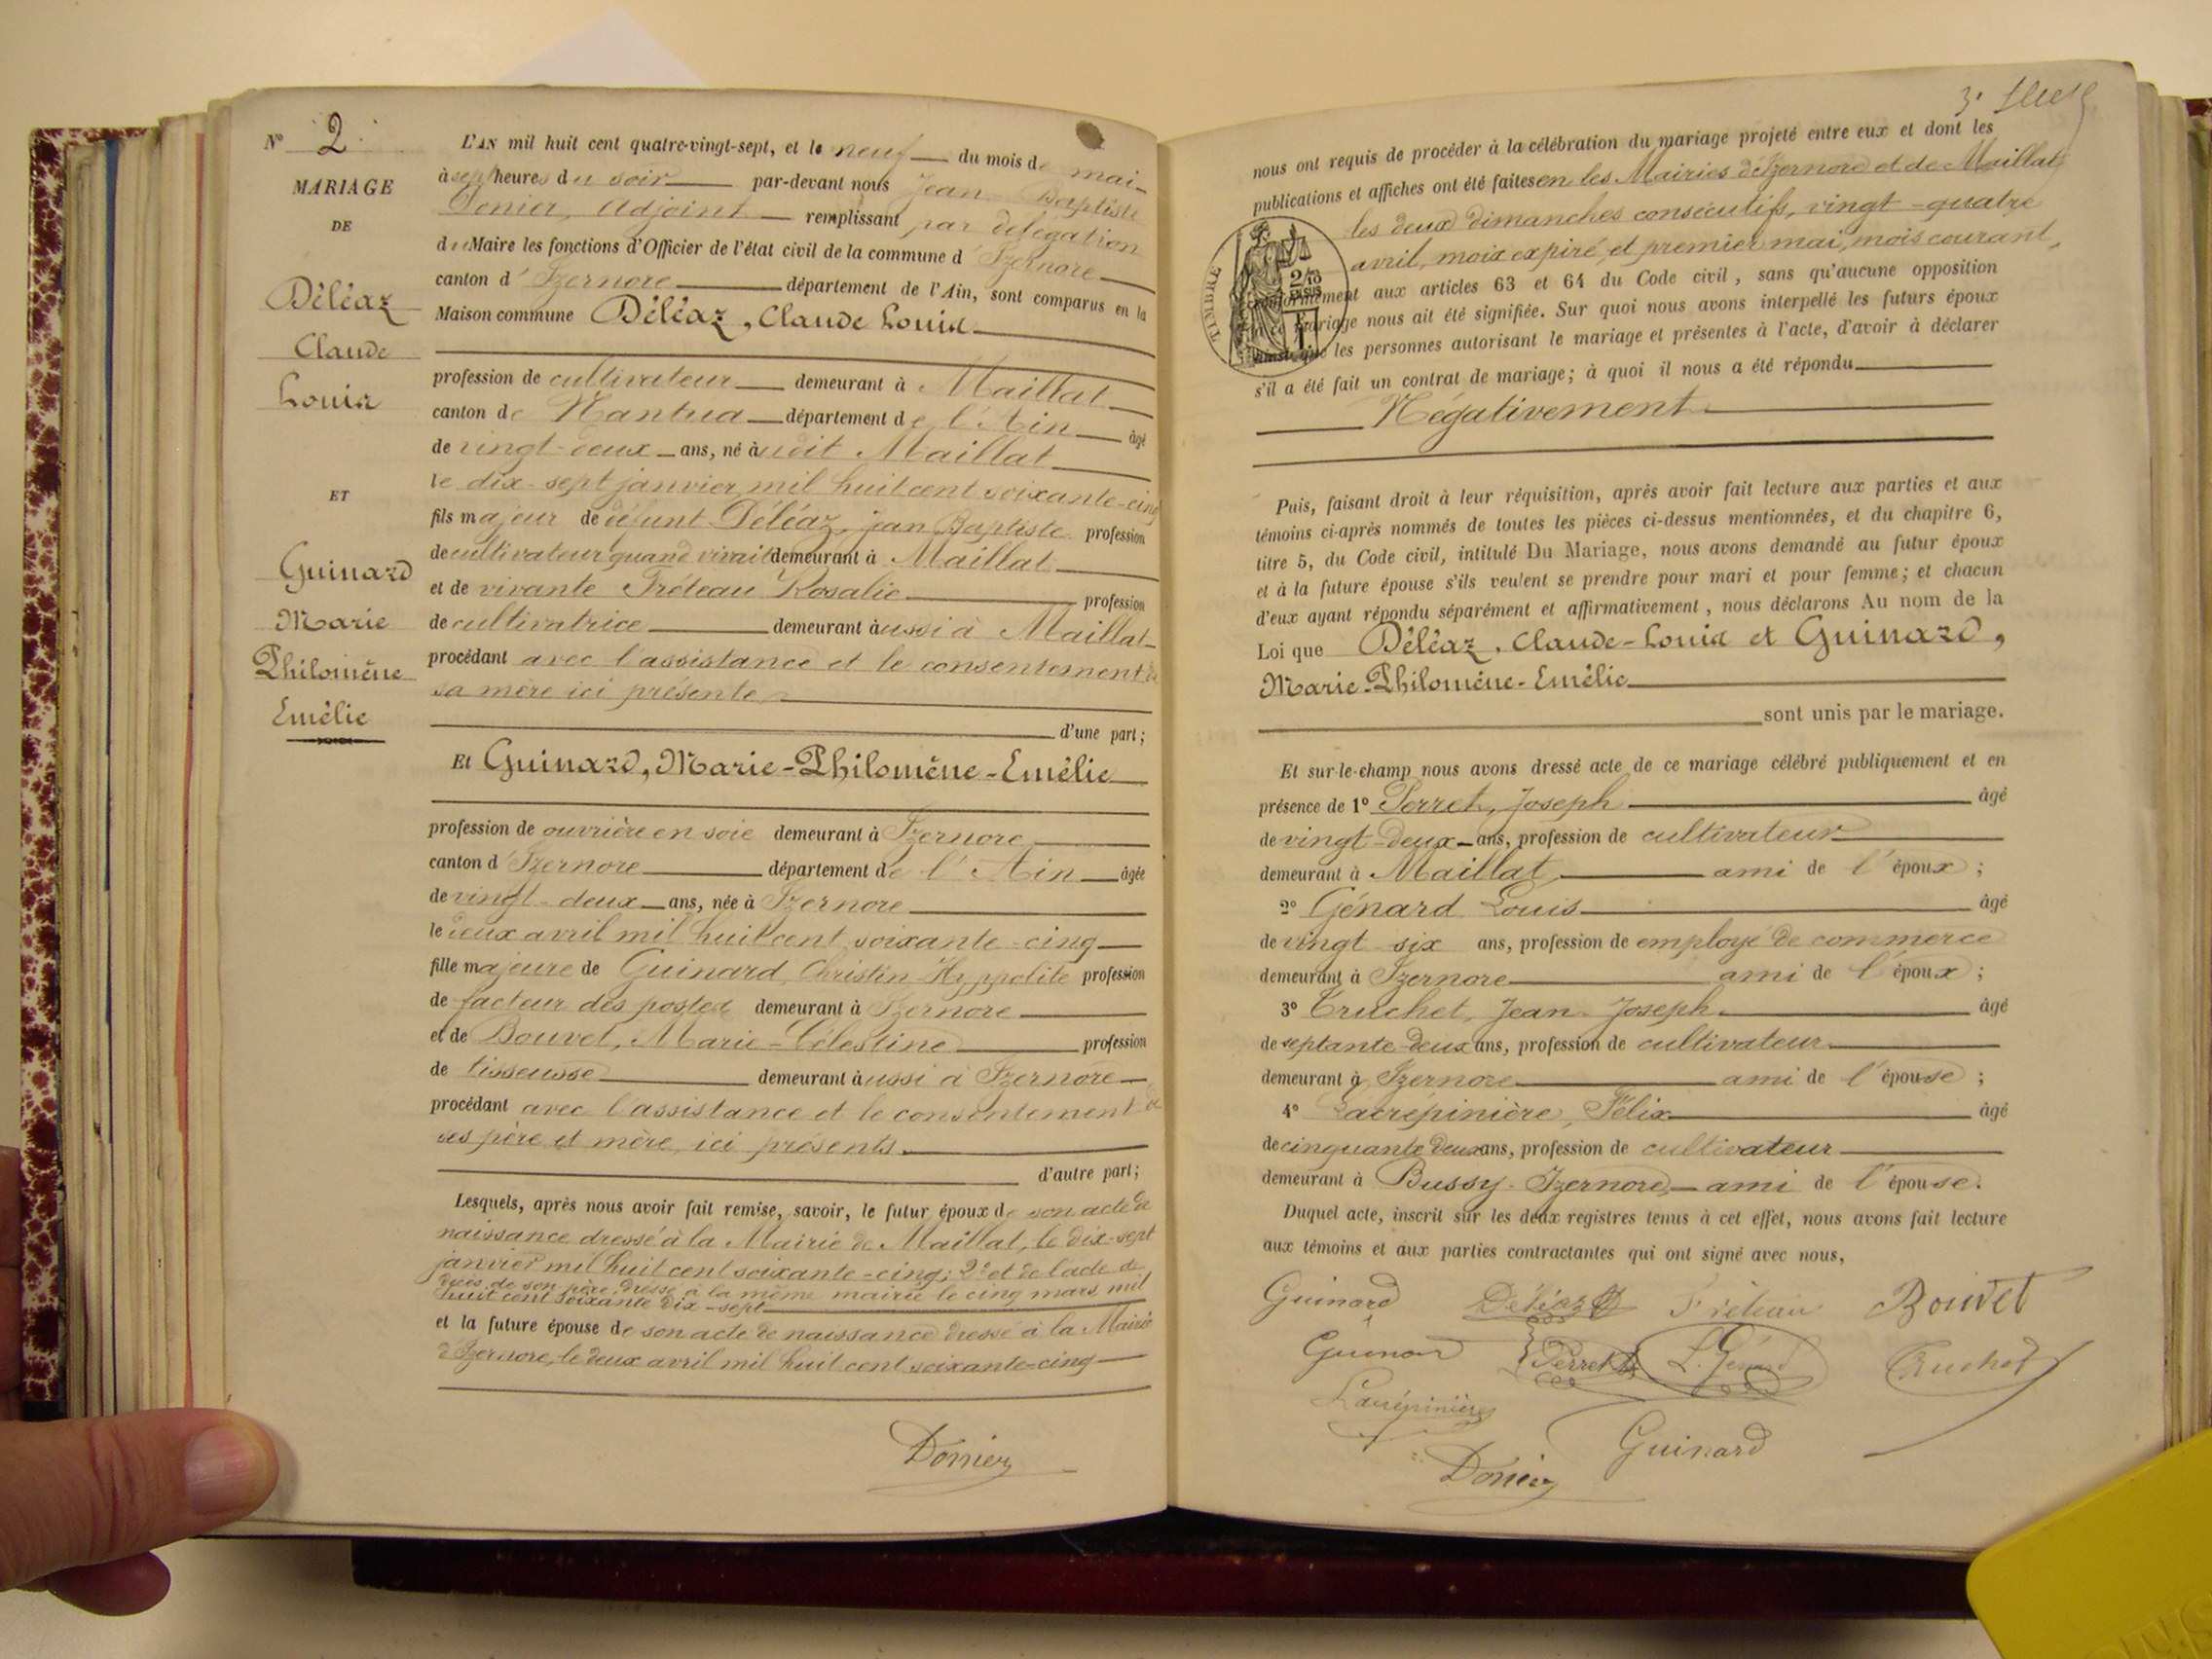 N° 2
MARIAGE
DE
Déléaz
Claude
Louis
ET
Guinard
Marie
Philomène
Emélie
L'AN mil huit cent quatre-vingt-sept, et le neuf du mois de mai
à sept heures du soir par-devant nous Jean Baptiste
Donier, Adjoint remplissant par délégation
du Maire les fonctions d'Officier de l'état civil de la commune d'Izernore
canton d'Izernore département de l'Ain, sont comparus en la
Maison commune Déléaz, Claude Louis
profession de cultivateur demeurant à Maillat
canton de Nantua département de l'Ain âgé
de vingt-deux ans, né àudit Maillat
le dix-sept janvier mil huit cent soixante-cinq
fils majeur de défunt Déléaz, jean Baptiste profession
de cultivateur quand vivait demeurant à Maillat
et de vivante Fréteau Rosalie profession
de cultivatrice demeurant aussi à Maillat
procédant avec l'assistance et le consentement de
sa mère ici présente
d'une part;
Et Guinard, Marie-Philomène-Emélie
profession de ouvrière en soie demeurant à Izernore
canton d'Izernore département de l'Ain âgée
de vingt-deux ans, née à Izernore
le deux avril mil huit cent soixante-cinq
fille majeure de Guinard, Christin Hyppolite profession
de facteur des postes demeurant à Izernore
et de Bouvet, Marie-Célestine profession
de tisseusse demeurant aussi à Izernore
procédant avec l'assistance et le consentement de
ses père et mère, ici présents
d'autre part;
Lesquels, après nous avoir fait remise, savoir, le futur époux de son acte de
naissance dressé à la Mairie de Maillat, le dix-sept
janvier mil huit cent soixante-cinq; 2° et de l'acte de
décès de son père, dressé à la même mairie le cinq mars mil
huit cent soixante dix-sept
et la future épouse de son acte de naissance dressé à la Mairie
d'Izernore, le deux avril mil huit cent soixante-cinq
Donier
nous ont requis de procéder à la célébration du mariage projeté entre eux et dont les
publications et affiches ont été faites en les Mairies d'Izernore et de Maillat
les deux dimanches consécutifs, vingt-quatre
avril, moix expiré, et premier mai, mois courant,
TIMBRE
conformément aux articles 63 et 64 du Code civil, sans qu'aucune opposition
mariage nous ait été signifiée. Sur quoi nous avons interpellé les futurs époux
ainsi que les personnes autorisant le mariage et présentes à l'acte, d'avoir à déclarer
s'il a été fait un contrat de mariage; à quoi il nous a été répondu
Négativement
Puis, faisant droit à leur réquisition, après avoir fait lecture aux parties et aux
témoins ci-après nommés de toutes les pièces ci-dessus mentionnées, et du chapitre 6,
titre 5, du Code civil, intitulé Du Mariage, nous avons demandé au futur époux
et à la future épouse s'ils veulent se prendre pour mari et pour femme; et chacun
d'eux ayant répondu séparément et affirmativement, nous déclarons Au nom de la
Loi que Déléaz, Claude-Louis et Guinard,
Marie-Philomène-Emélie
sont unis par le mariage.
Et sur-le-champ nous avons dressé acte de ce mariage célébré publiquement et en
présence de 1° Perret, Joseph âgé
de vingt-deux ans, profession de cultivateur
demeurant à Maillat ami de l'époux;
2° Génard Louis âgé
de vingt six ans, profession de employé de commerce
demeurant à Izernore ami de l'époux;
3° Truchet, Jean-Joseph âgé
de septante-deux ans, profession de cultivateur
demeurant à Izernore ami de l'épouse;
4° Lacrépinière, Félix âgé
de cinquante deux ans, profession de cultivateur
demeurant à Bussy-Izernore, ami de l'épouse.
Duquel acte, inscrit sur les deux registres tenus à cet effet, nous avons fait lecture
aux témoins et aux parties contractantes qui ont signé avec nous,
Guinard Déléaz Fréteau Bouvet
Guinard Perret L. Génard Truchet
Lacrépinière
Donier Guinard